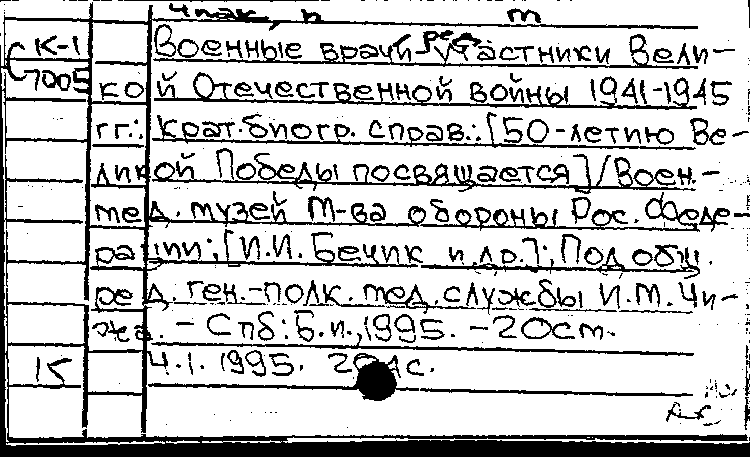 К-1
7005
Военные врачи - участники Вели-
кой Отечественной войны 1941-1945
гг.: крат. биогр. справ.: [50-летию Ве-
ликой Победы посвящается] / Воен.-
мед. музей М-ва обороны Рос. Феде-
рации; [И.И. Бечик и др.]; Под общ.
ред. ген.-полк. мед. службы И.М. Чи-
жа. - Спб: Б.и., 1995. - 20 см.
15 Ч.1. 1995. с.